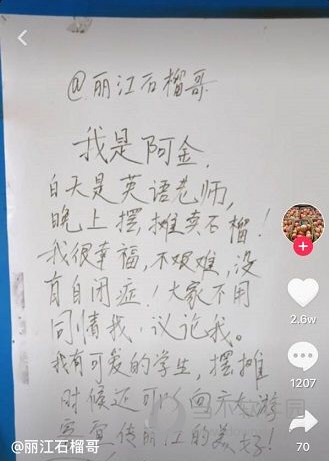 @丽江石榴哥
我是阿金.
白天是英语老师,
晚上摆摊卖石榴!
我很幸福,不艰难,没
有自闭症!大家不用
同情我,议论我。
我有可爱的学生,摆摊
时候还可以向大家游
宣传丽江的美好!
2.6w
1207
@丽江石榴哥
70